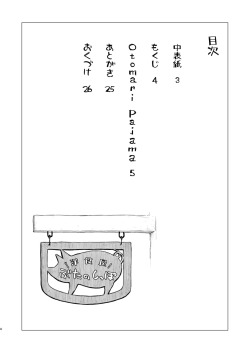 目次
中表紙 3
もくじ 4
Otomari Pajama 5
あとがき 25
おくづけ 26
洋食屋
ぶたのしっぽ